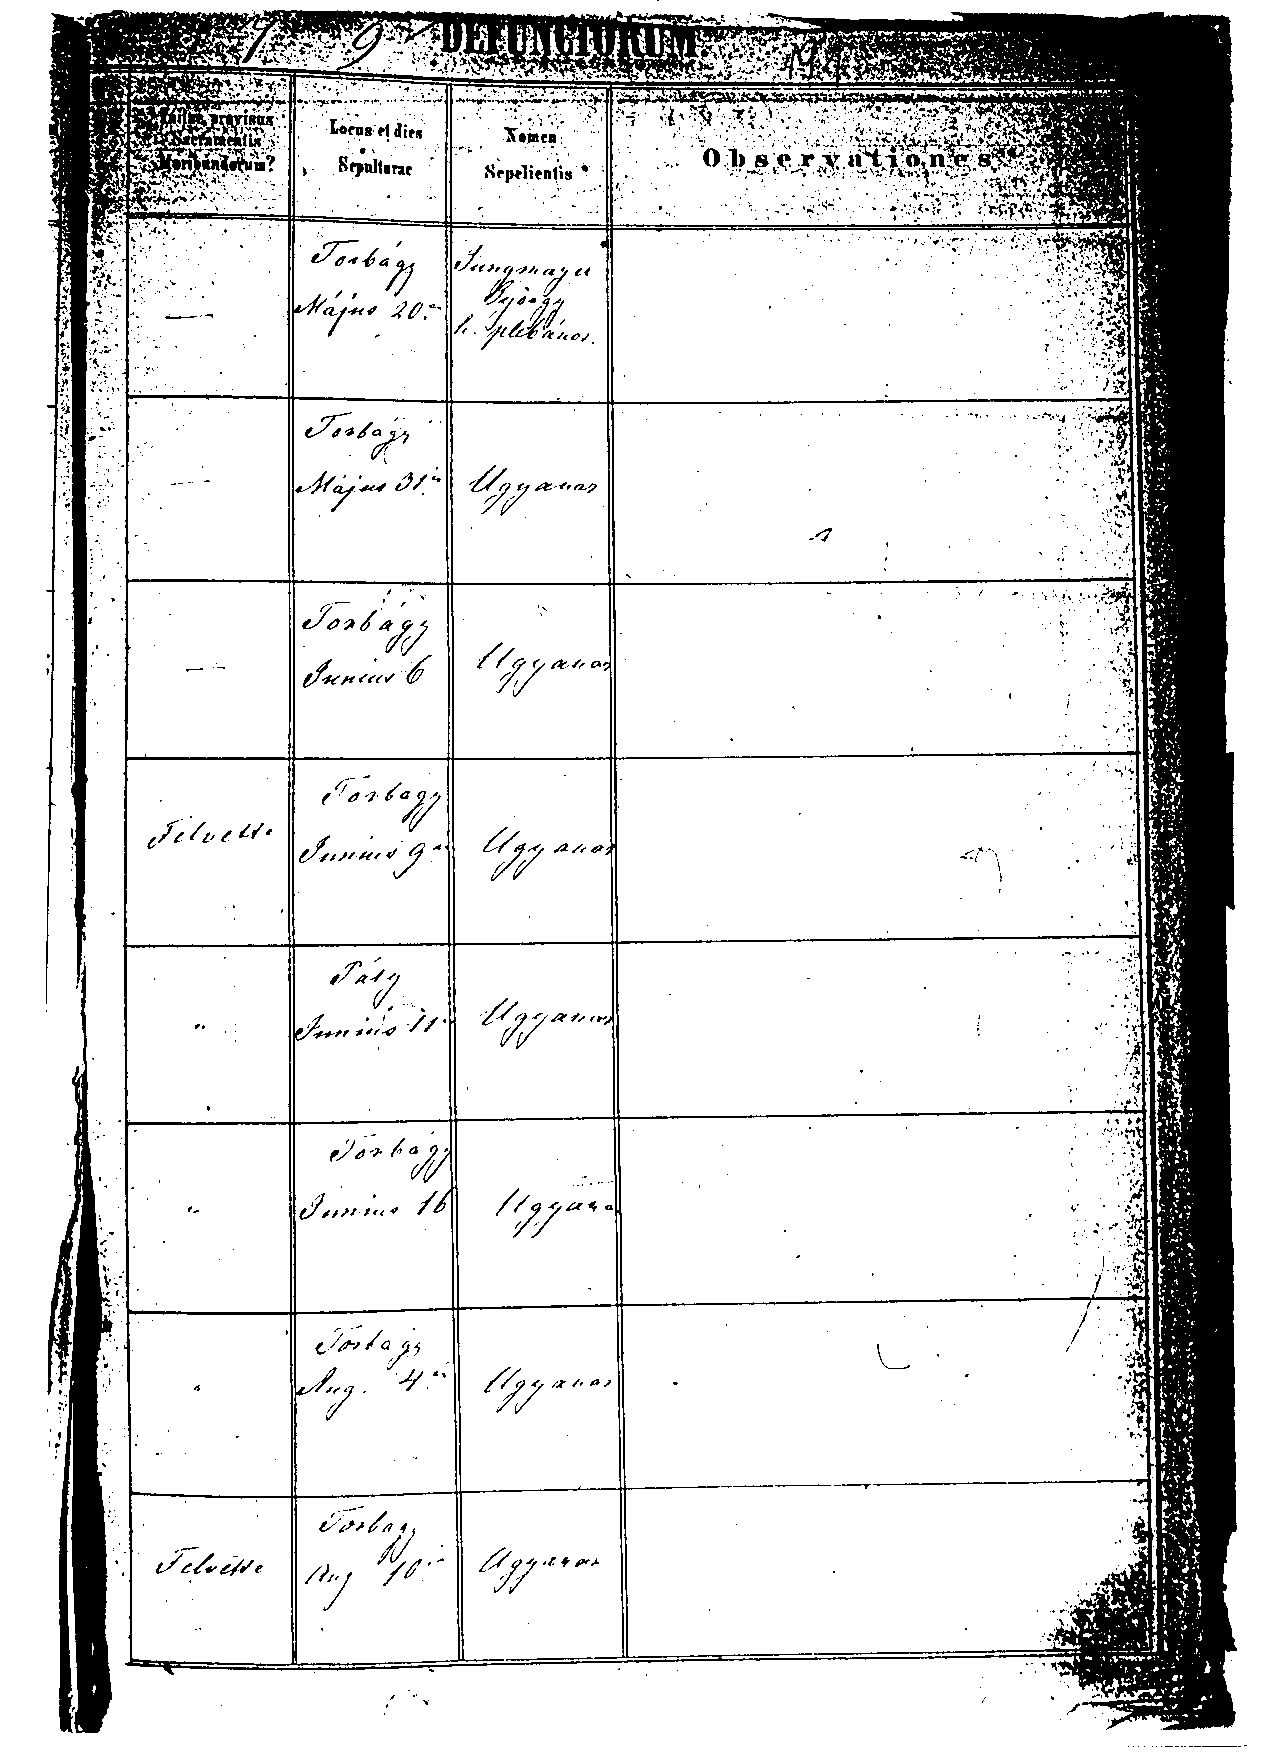 7 9 DEFUNCTORUM.
provisus
Sacramentis
Moribundorum?
Locus et dies
Sepulturae
Nomen
Sepelientis
Observationes
Torbágy
Május 20.án
Jungmayer
György
h. plébános.
—
Torbágy
Május 31.én
Ugyanaz
—
Torbágy
Junius 6
Ugyanaz
—
Felvette
Torbágy
Junius 9én
Ugyanaz
"
Páty
Junius 11én
Ugyanaz
"
Torbágy
Junius 16
Ugyana
"
Torbágy
Aug. 4én
Ugyanaz
Felvette
Torbágy
Aug 10én
Ugyanaz